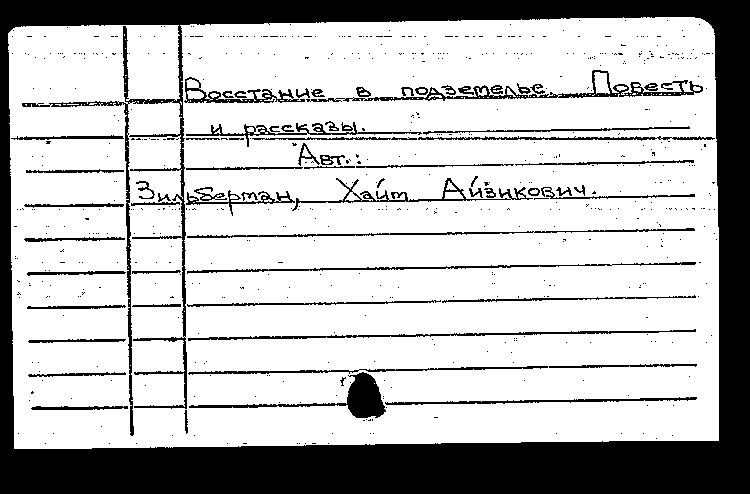 Восстание в подземелье. Повесть
и рассказы.
Авт.:
Зильберман, Хаим Айзикович.